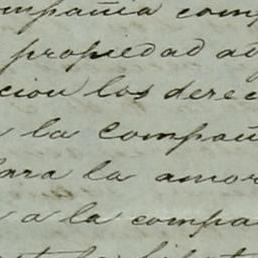 ompañia comp
propiedad ad
cion los derec
la Compañ
Para la amor
a la compa